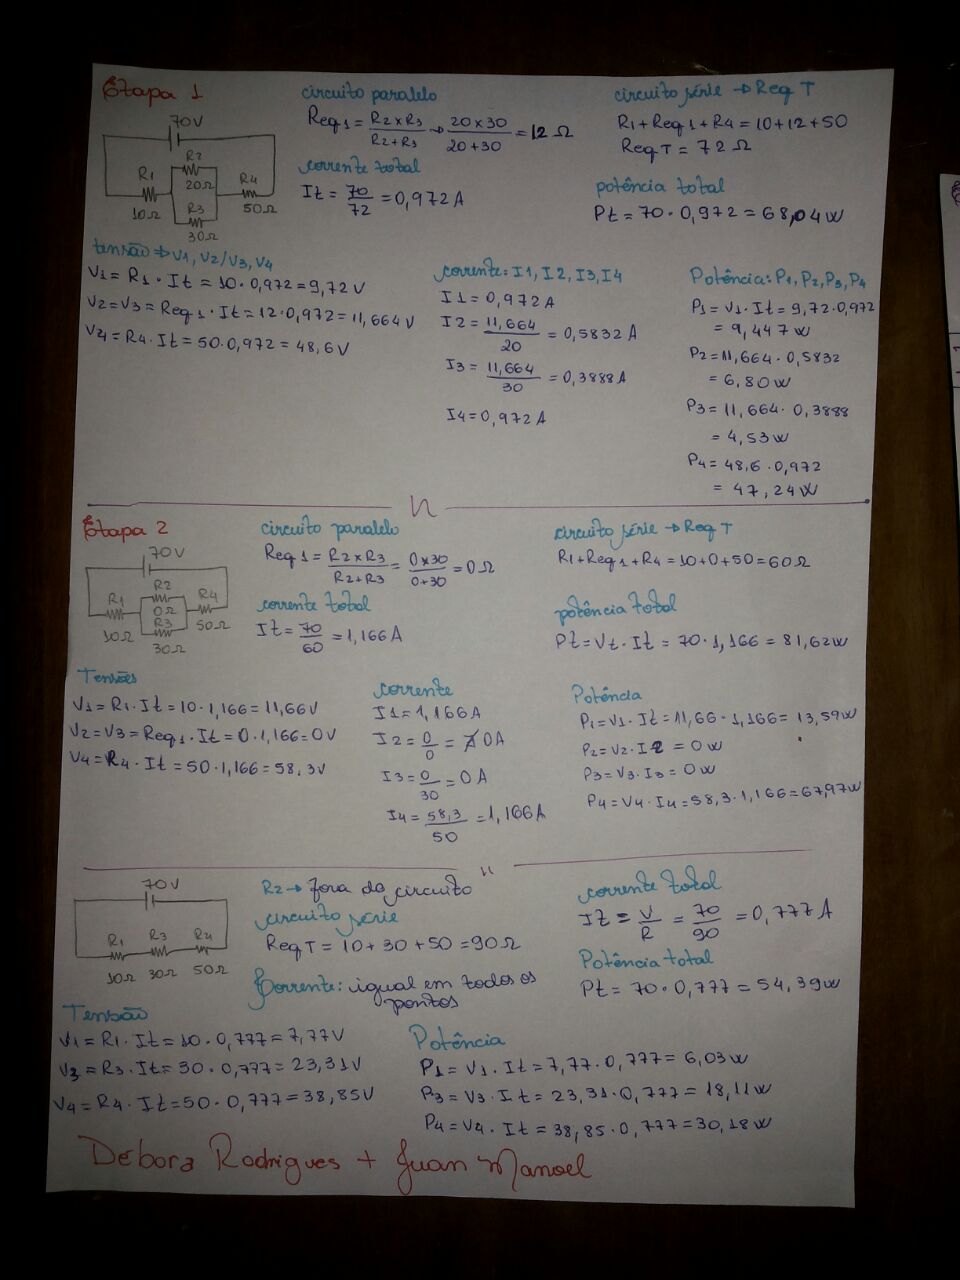 Etapa 1
70V
R1
10Ω
R2
20Ω
R3
30Ω
R4
50Ω
circuito paralelo
Req1 = R2 x R3 / R2 + R3 → 20 x 30 / 20 + 30 = 12 Ω
corrente total
It = 70 / 72 = 0,972 A
circuito série → Req T
R1 + Req1 + R4 = 10 + 12 + 50
Req T = 72 Ω
potência total
Pt = 70 · 0,972 = 68,04 w
tensão → V1, V2/V3, V4
V1 = R1 · It = 10 · 0,972 = 9,72 V
V2 = V3 = Req1 · It = 12 · 0,972 = 11,664 V
V4 = R4 · It = 50 · 0,972 = 48,6 V
corrente: I1, I2, I3, I4
I1 = 0,972 A
I2 = 11,664 / 20 = 0,5832 A
I3 = 11,664 / 30 = 0,3888 A
I4 = 0,972 A
Potência: P1, P2, P3, P4
P1 = V1 · It = 9,72 · 0,972
= 9,447 w
P2 = 11,664 · 0,5832
= 6,80 w
P3 = 11,664 · 0,3888
= 4,53 w
P4 = 48,6 · 0,972
= 47,24 w
Etapa 2
70V
R1
10Ω
R2
0Ω
R3
30Ω
R4
50Ω
circuito paralelo
Req1 = R2 x R3 / R2 + R3 = 0 x 30 / 0 + 30 = 0 Ω
corrente total
It = 70 / 60 = 1,166 A
circuito série → Req T
R1 + Req1 + R4 = 10 + 0 + 50 = 60 Ω
potência total
Pt = Vt · It = 70 · 1,166 = 81,62 w
Tensões
V1 = R1 · It = 10 · 1,166 = 11,66 V
V2 = V3 = Req1 · It = 0 · 1,166 = 0 V
V4 = R4 · It = 50 · 1,166 = 58,3 V
corrente
I1 = 1,166 A
I2 = 0 / 0 = 0 A
I3 = 0 / 30 = 0 A
I4 = 58,3 / 50 = 1,166 A
Potência
P1 = V1 · It = 11,66 · 1,166 = 13,59 w
P2 = V2 · I2 = 0 w
P3 = V3 · I3 = 0 w
P4 = V4 · I4 = 58,3 · 1,166 = 67,97 w
70V
R1
10Ω
R3
30Ω
R4
50Ω
R2 → fora do circuito
circuito série
Req T = 10 + 30 + 50 = 90 Ω
Corrente: igual em todos os
pontos
corrente total
It = V / R = 70 / 90 = 0,777 A
Potência total
Pt = 70 · 0,777 = 54,39 w
Tensão
V1 = R1 · It = 10 · 0,777 = 7,77 V
V3 = R3 · It = 30 · 0,777 = 23,31 V
V4 = R4 · It = 50 · 0,777 = 38,85 V
Potência
P1 = V1 · It = 7,77 · 0,777 = 6,03 w
P3 = V3 · It = 23,31 · 0,777 = 18,11 w
P4 = V4 · It = 38,85 · 0,777 = 30,18 w
Débora Rodrigues + Juan Manoel